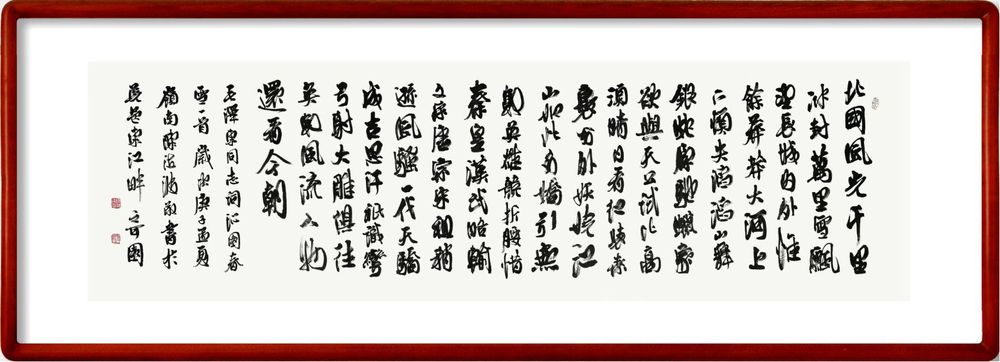 北國風光千里
冰封萬里雪飄
望長城內外惟
餘莽莽大河上
下頓失滔滔山舞
銀蛇原馳蠟象
欲與天公試比高
須晴日看紅裝素
裹分外妖嬈江
山如此多嬌引無
數英雄競折腰惜
秦皇漢武略輸
文采唐宗宋祖稍
遜風騷一代天驕
成吉思汗祇識彎
弓射大雕俱往
矣數風流人物
還看今朝
毛澤東同志詞沁園春
雪一首歲次庚子孟夏
嶺南敬書於
江畔